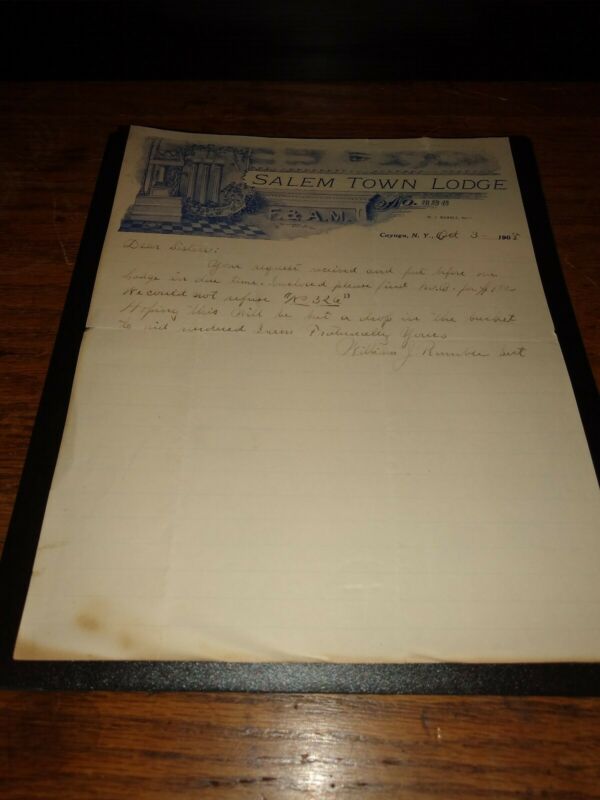 SALEM TOWN LODGE
No. 326
F. & A. M.
Cayuga, N. Y., Oct 3 - 1905
Dear Sisters:
Your request received and put before our
Lodge in due time. Enclosed please find for $1.00
We could not refuse "No 326"
Hoping this will be but a drop in the bucket
to aid I am Fraternally Yours
William J. Rumble Sect